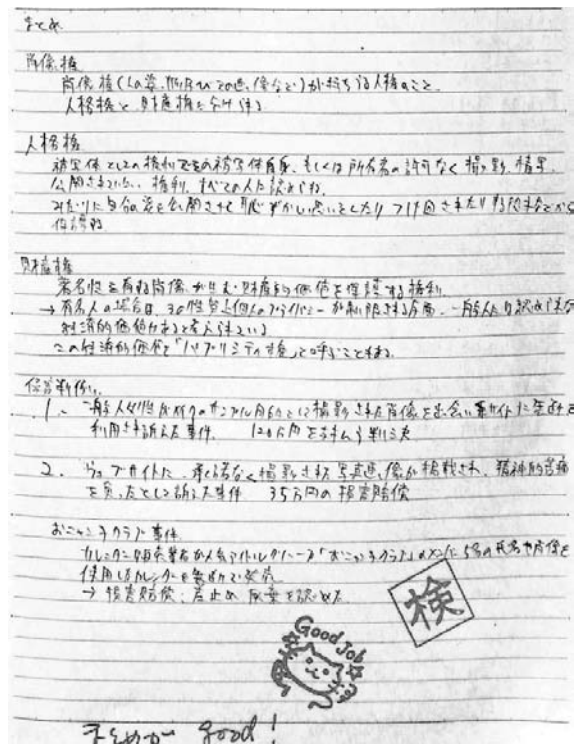 まとめ
肖像権
肖像権(人の姿、形及びその画像など)が持ちうる人権のこと
人格権と財産権に分けれる
人格権
被写体としての権利でその被写体自身、もしくは所有者の許可なく撮影、描写、
公開されない権利。すべての人に認められる。
みだりに自分の姿を公開されて恥ずかしい思いをしたりつけ回されたりする
保護
財産権
著名性を有する肖像が生む財産的価値を保護する権利
→有名人の場合は、その性質上個人のプライバシーが制限される
経済的価値があると考えられている
この経済的価値を「パブリシティ権」と呼ぶこともある。
1. 一般人女性が サンプル として撮影された肖像を出会い系サイトに
利用され訴えた事件 120万円を支払う判決
2. ウェブサイトに、承諾なく撮影された写真画像が掲載され、精神的苦痛
を負ったとして訴えた事件 35万円の損害賠償
おニャン子クラブ事件
カレンダー販売業者が人気アイドルグループ「おニャン子クラブ」のメンバー5名の氏名や肖像を
使用したカレンダーを無断で発売
→損害賠償、差止め、廃棄を認めた
検
Good Job
まとめが good!